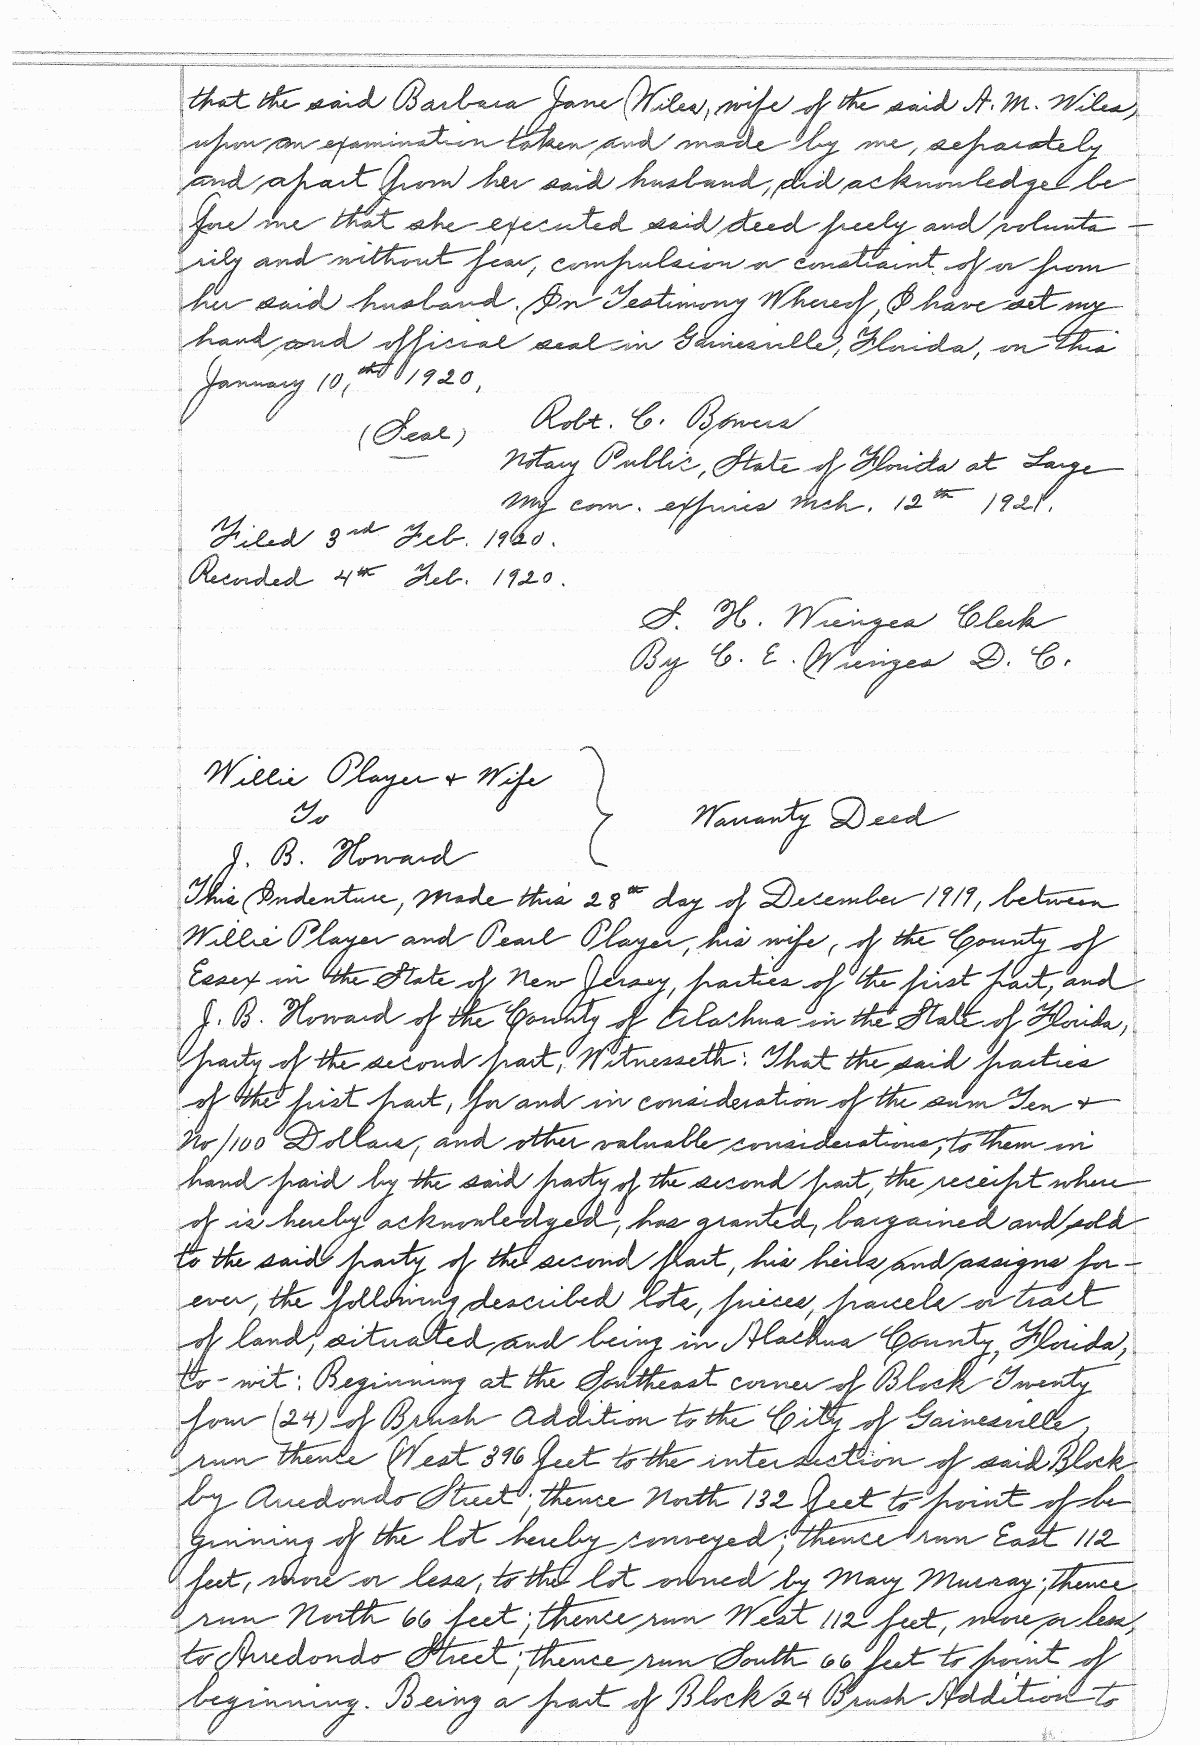 that the said Barbara Jane Wiles, wife of the said A. M. Wiles,
upon an examination taken and made by me, separately
and apart from her said husband, did acknowledge be
fore me that she executed said deed freely and volunta -
rily and without fear, compulsion or constraint of or from
her said husband. In Testimony Whereof, I have set my
hand and official seal in Gainesville, Florida, on this
January 10,th 1920,
(Seal) Robt. C. Bowers
Notary Public, State of Florida at Large
My com. expires Mch. 12th 1921.
Filed 3rd Feb. 1920.
Recorded 4th Feb. 1920.
S. H. Wienges Clerk
By C. E. Wienges D. C.
Willie Player & Wife
To
J. B. Howard
Warranty Deed
This Indenture, Made this 28th day of December 1919, between
Willie Player and Pearl Player, his wife, of the County of
Essex in the State of New Jersey, parties of the first part, and
J. B. Howard of the County of Alachua in the State of Florida,
party of the second part, Witnesseth: That the said parties
of the first part, for and in consideration of the sum Ten &
No/100 Dollars, and other valuable considerations, to them in
hand paid by the said party of the second part, the receipt where
of is hereby acknowledged, has granted, bargained and sold
to the said party of the second part, his heirs and assigns for -
ever, the following described lots, pieces, parcels or tract
of land, situated and being in Alachua County, Florida,
to - wit: Beginning at the Southeast corner of Block Twenty
four (24) of Brush Addition to the City of Gainesville,
run thence West 396 feet to the intersection of said Block
by Arredondo Street; thence North 132 feet to point of be
ginning of the lot hereby conveyed; thence run East 112
feet, more or less, to the lot owned by Mary Murray; thence
run North 66 feet; thence run West 112 feet, more or less,
to Arredondo Street; thence run South 66 feet to point of
beginning. Being a part of Block 24 Brush Addition to